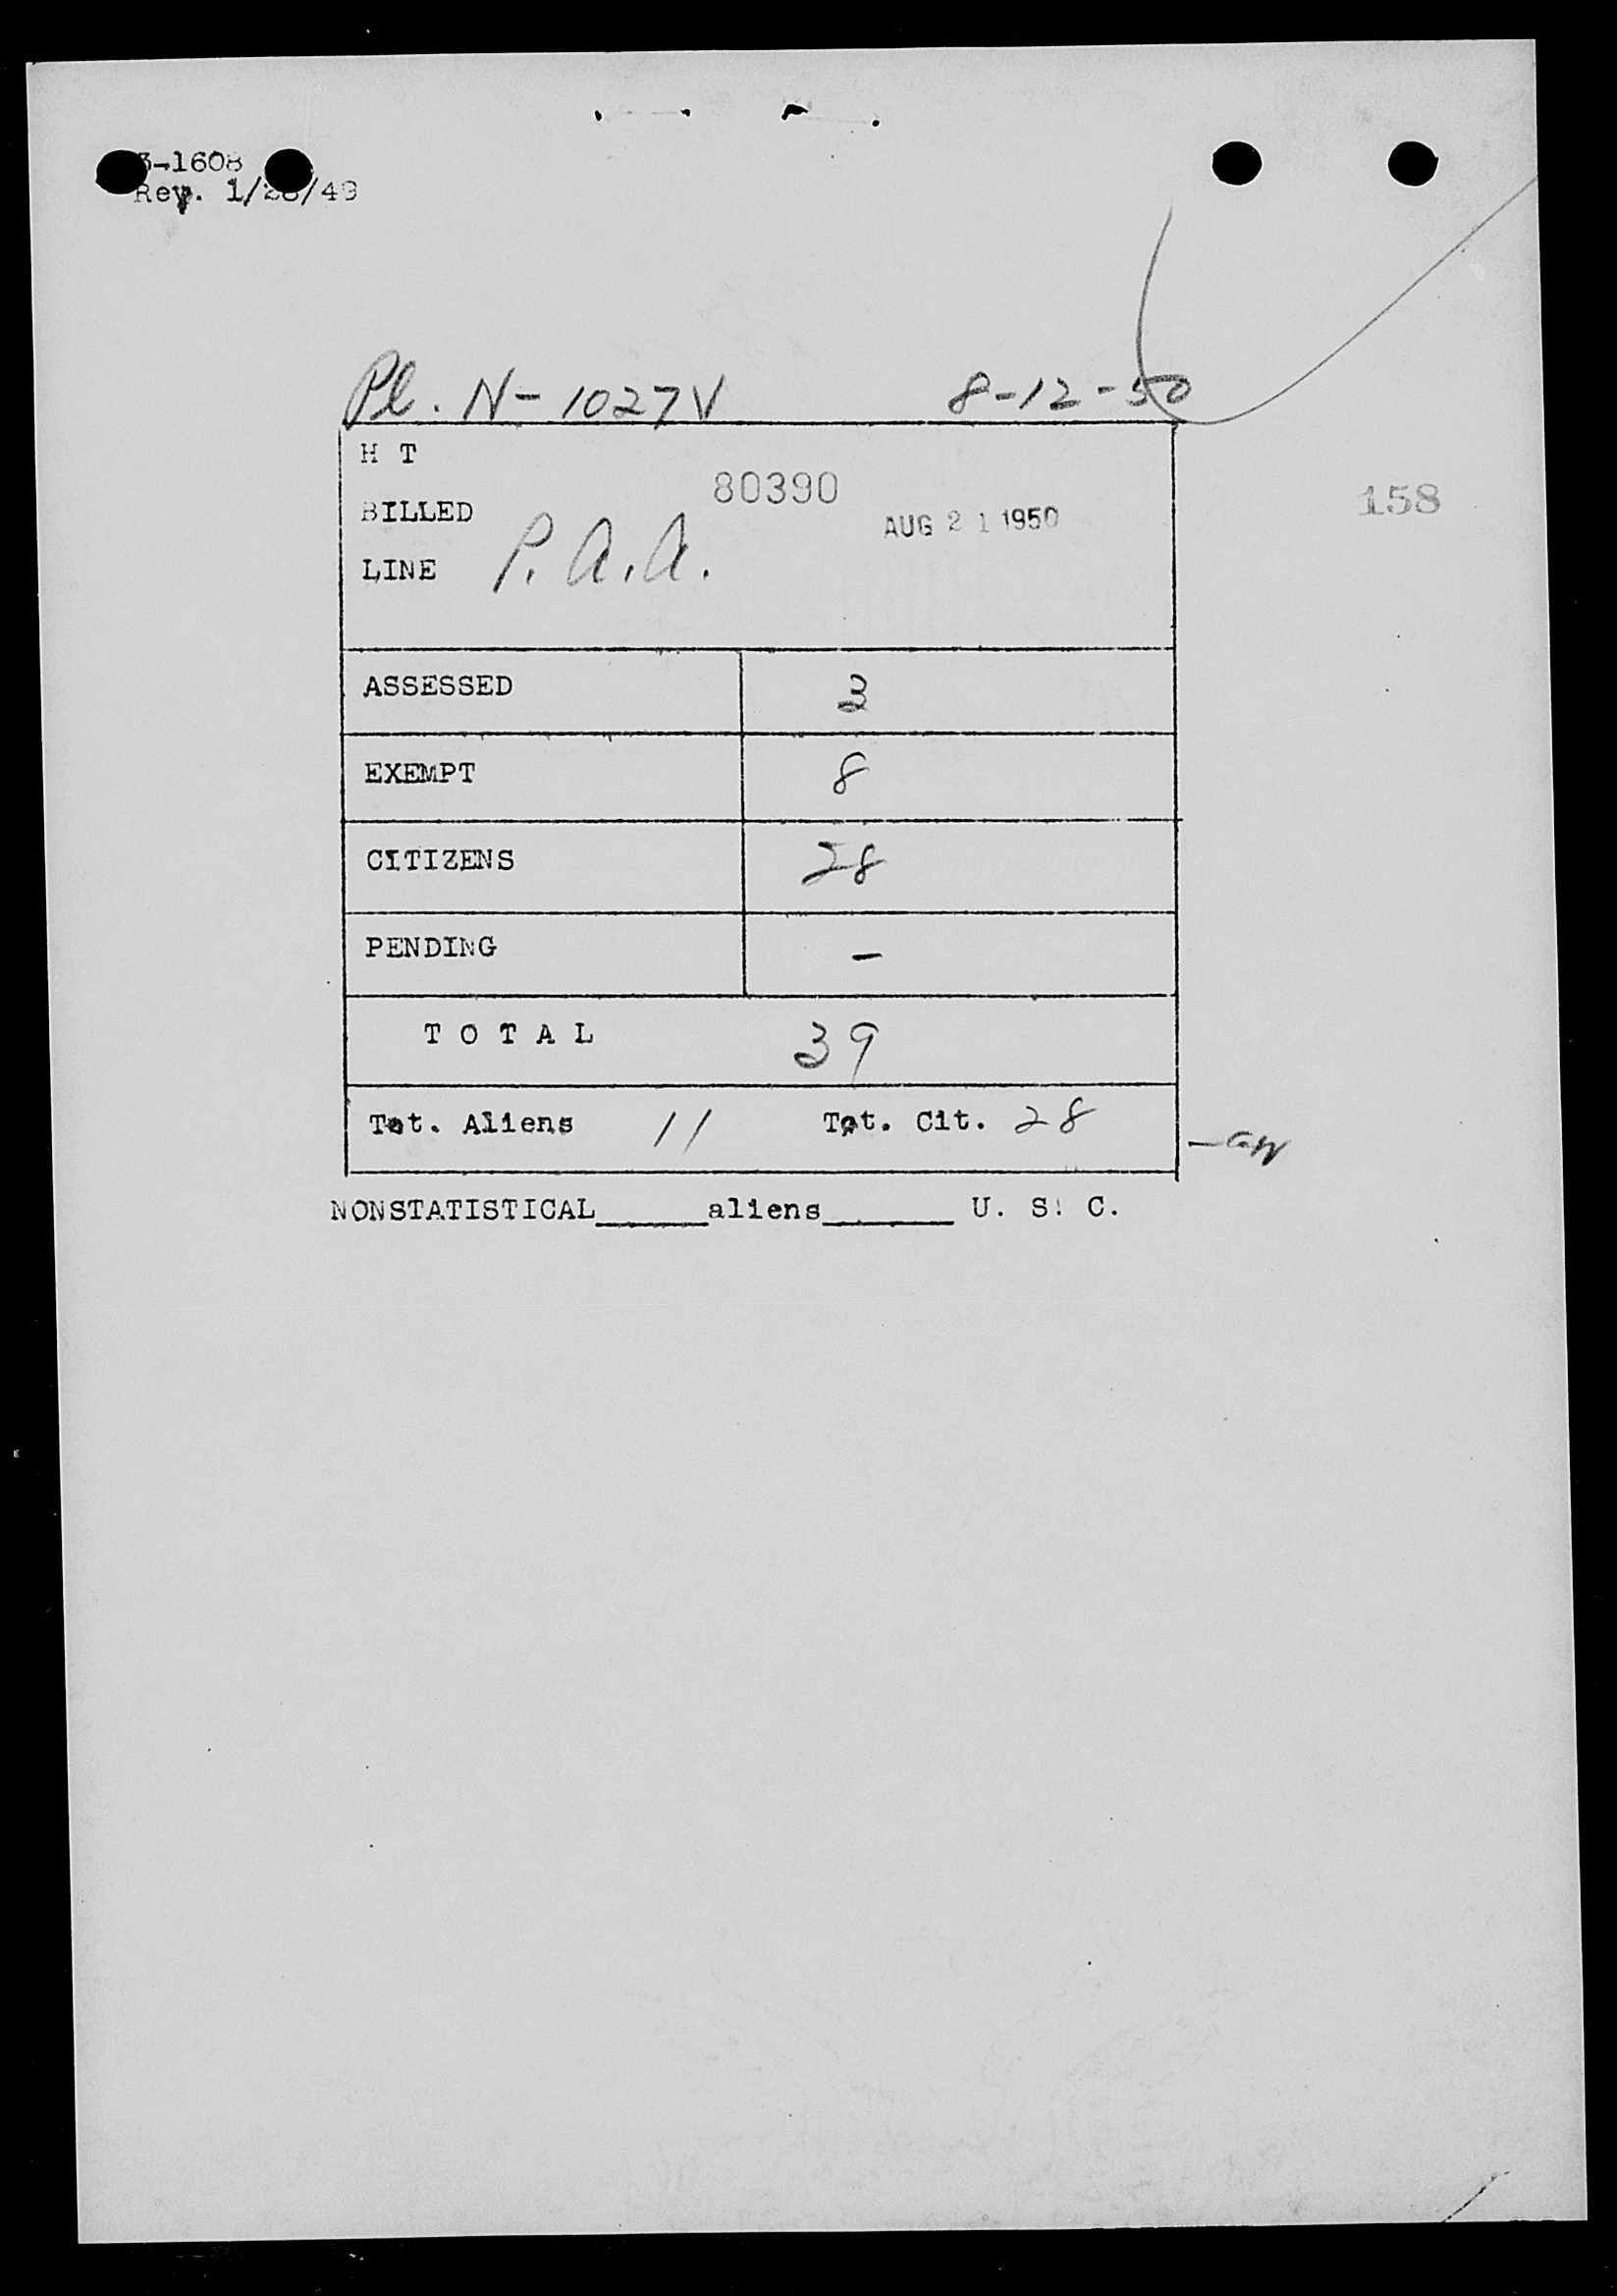 3-1608
Rev. 1/28/49
Pl. N-1027V 8-12-50
H T
80390
BILLED AUG 21 1950 158
LINE P.A.A.
ASSESSED 3
EXEMPT 8
CITIZENS 28
PENDING -
T O T A L 39
Tot. Aliens 11 Tot. Cit. 28
NONSTATISTICAL______aliens_______ U. S. C.